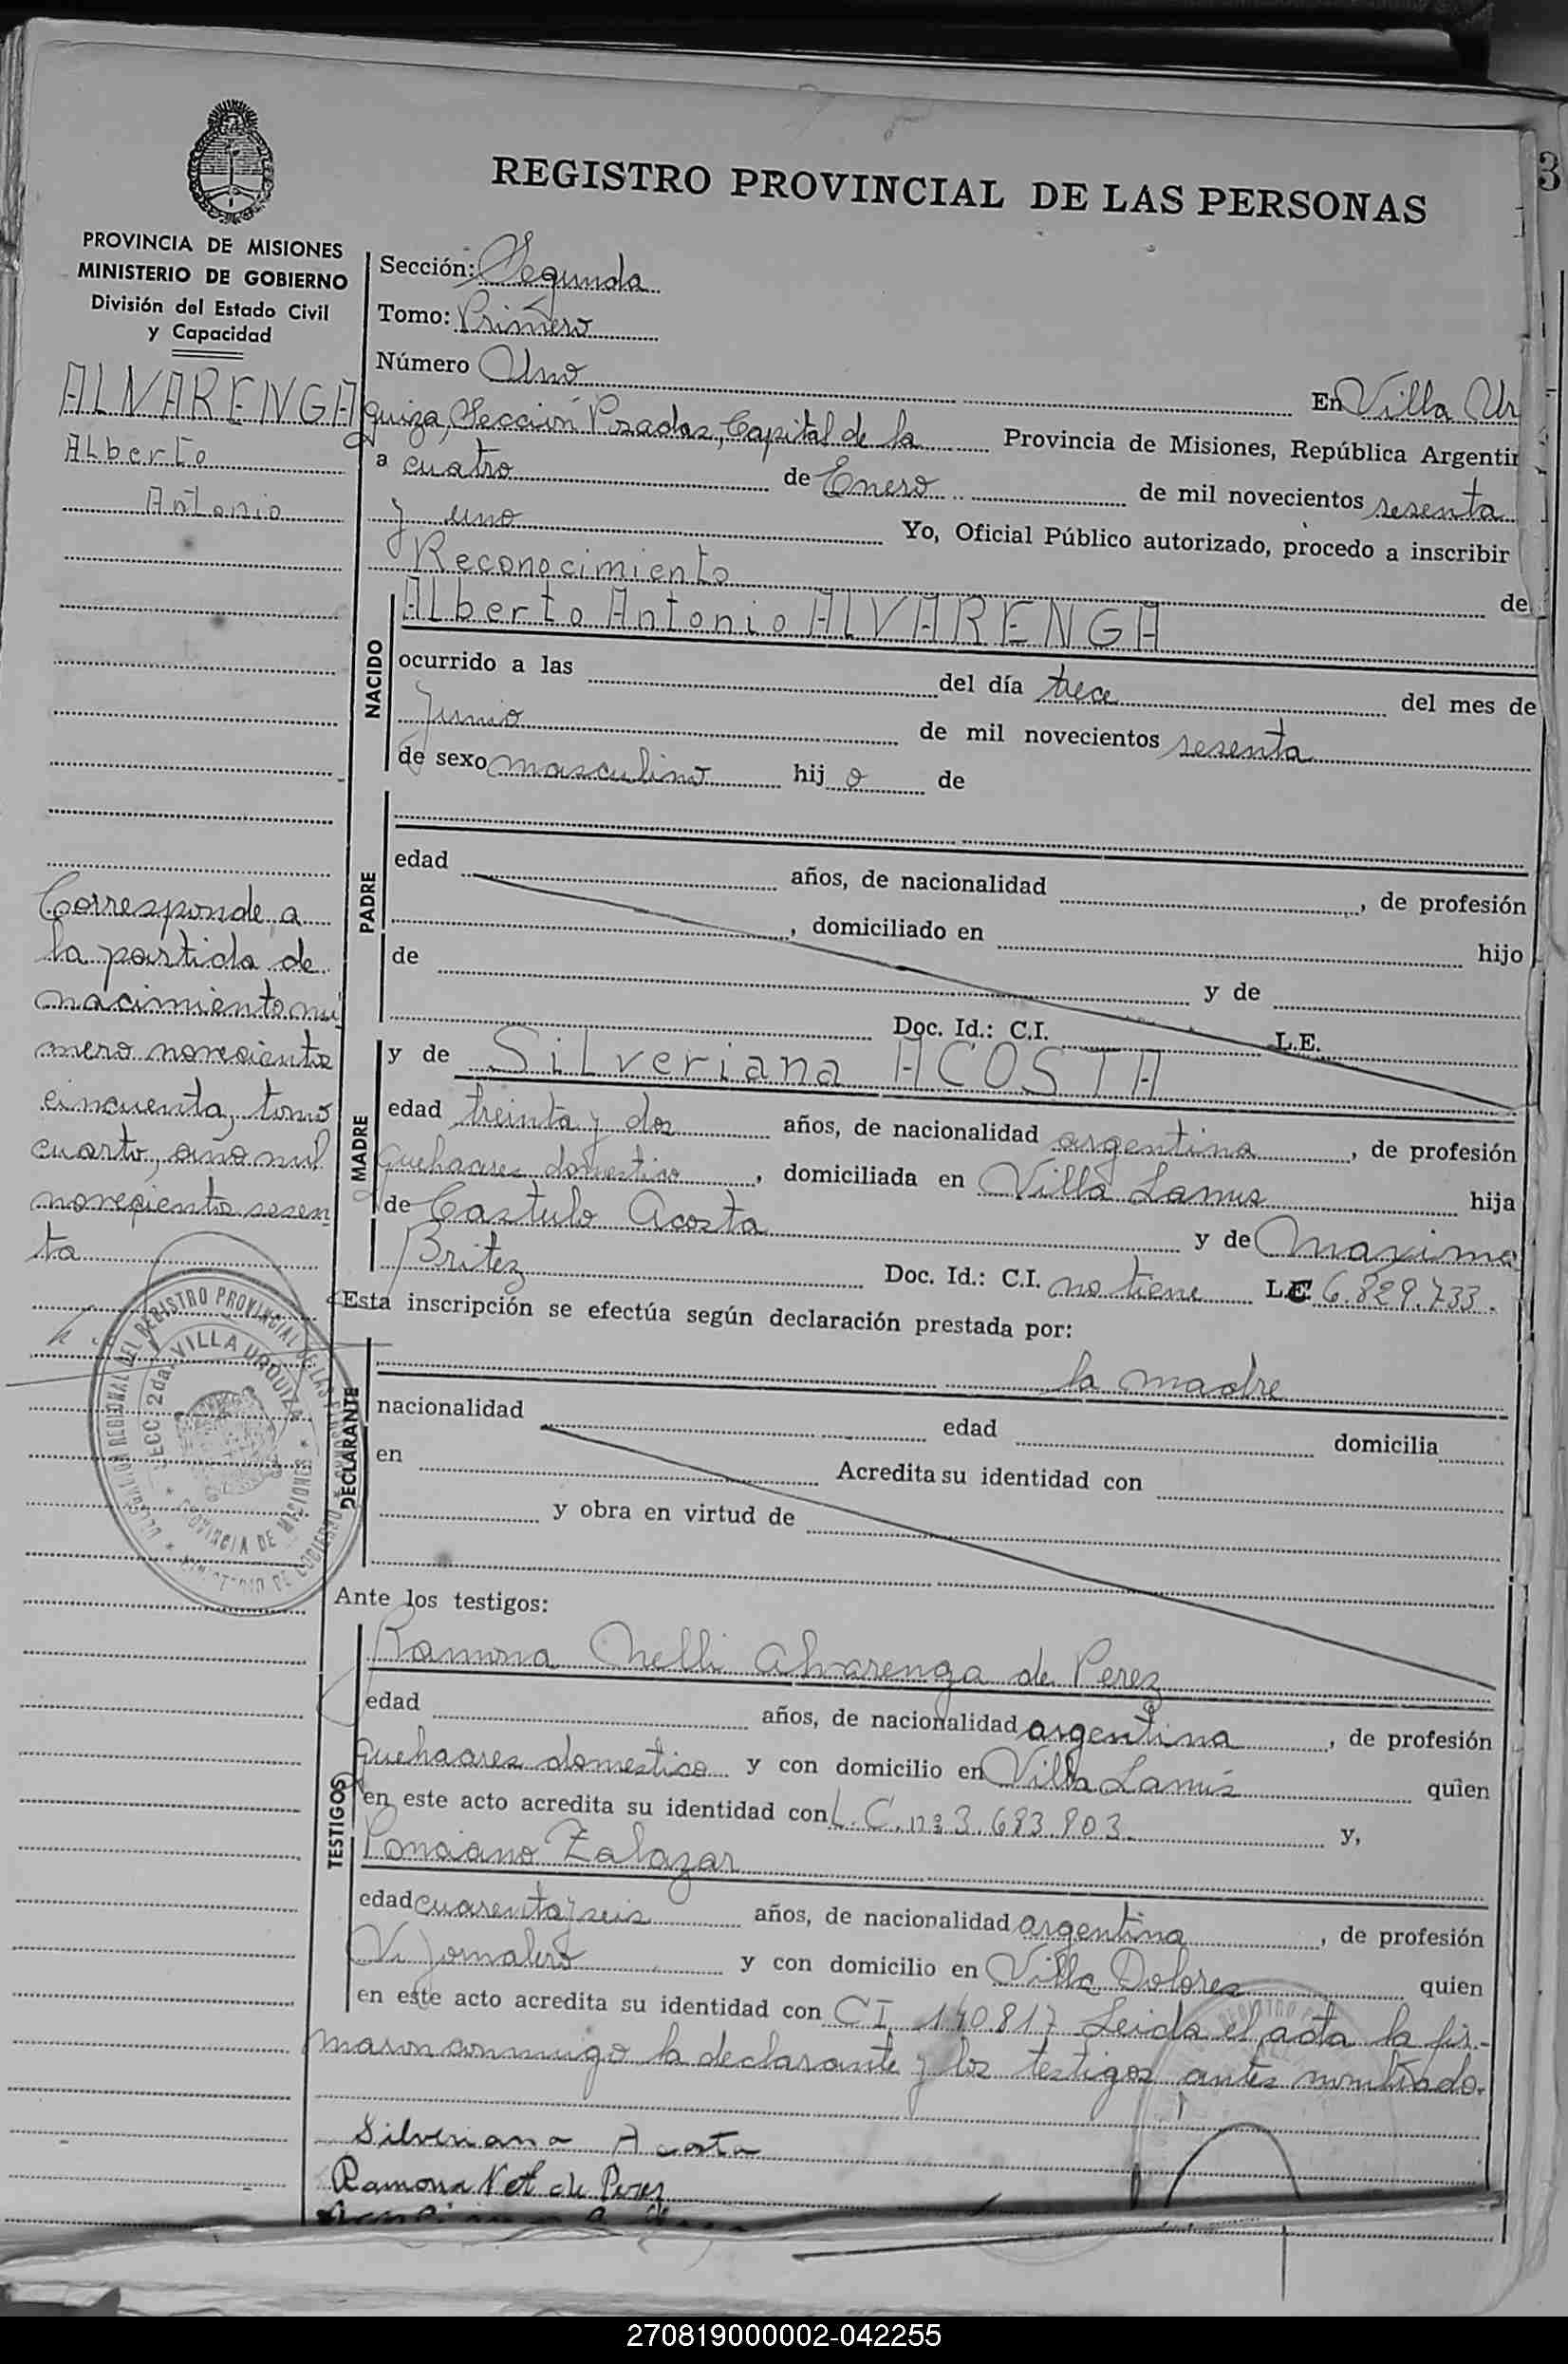 REGISTRO PROVINCIAL DE LAS PERSONAS
3
PROVINCIA DE MISIONES
MINISTERIO DE GOBIERNO
División del Estado Civil
y Capacidad
ALVARENGA
Alberto
Antonio
Corresponde a
la partida de
nacimiento nú
mero novecientos
cincuenta, tomo
cuarto, año mil
novecientos sesen
ta
Sección: Segunda
Tomo: Primero
Número Uno
En Villa Ur
quiza, Sección Posadas, Capital de la Provincia de Misiones, República Argentin
a cuatro de Enero de mil novecientos sesenta
y uno Yo, Oficial Público autorizado, procedo a inscribir
Reconocimiento de
NACIDO
Alberto Antonio ALVARENGA
ocurrido a las del día trece del mes de
Junio de mil novecientos sesenta
de sexo masculino hijo de
PADRE
edad años, de nacionalidad , de profesión
, domiciliado en hijo
de y de
Doc. Id.: C.I. L.E.
MADRE
y de Silveriana ACOSTA
edad treinta y dos años, de nacionalidad argentina, de profesión
quehaceres domestico, domiciliada en Villa Lanus hija
de Castulo Acosta y de Maxima
Britez Doc. Id.: C.I. no tiene L.C 6.829.733.
Esta inscripción se efectúa según declaración prestada por:
DECLARANTE
la madre
nacionalidad edad domicilia
en Acredita su identidad con
y obra en virtud de
SECC 2da. VILLA URQUIZA
PROVINCIA DE MISIONES
Ante los testigos:
TESTIGOS
Ramona Nelli Alvarenga de Perez
edad años, de nacionalidad argentina, de profesión
quehaceres domestico y con domicilio en Villa Lanús quien
en este acto acredita su identidad con L.C. nº 3.683.803. y,
Ponciano Zalazar
edad cuarenta y seis años, de nacionalidad argentina, de profesión
jornalero y con domicilio en Villa Dolores quien
en este acto acredita su identidad con CI 140.817 Leida el acta la fir-
maron conmigo la declarante y los testigos antes nombrado.
Silveriana Acosta
Ramona N de Perez
270819000002-042255